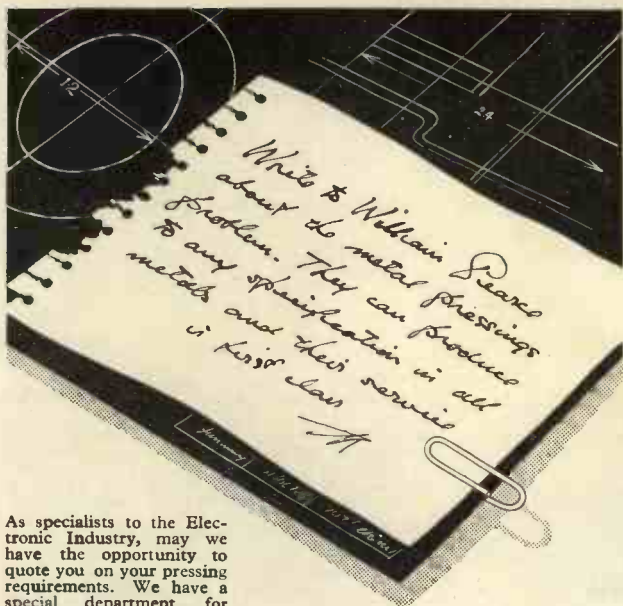 12
24
Write to William Pearce
about the metal pressings
problem. They can produce
to any specification in all
metals and their service
is first class
As specialists to the Elec-
tronic Industry, may we
have the opportunity to
quote you on your pressing
requirements. We have a
special department for